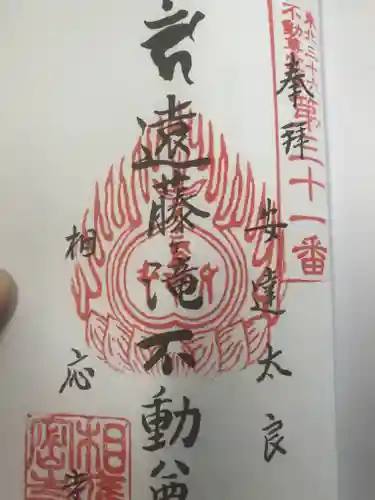 東北三十六
不動尊
第三十一番
奉拝
安達太良
遠藤滝不動尊
相応寺